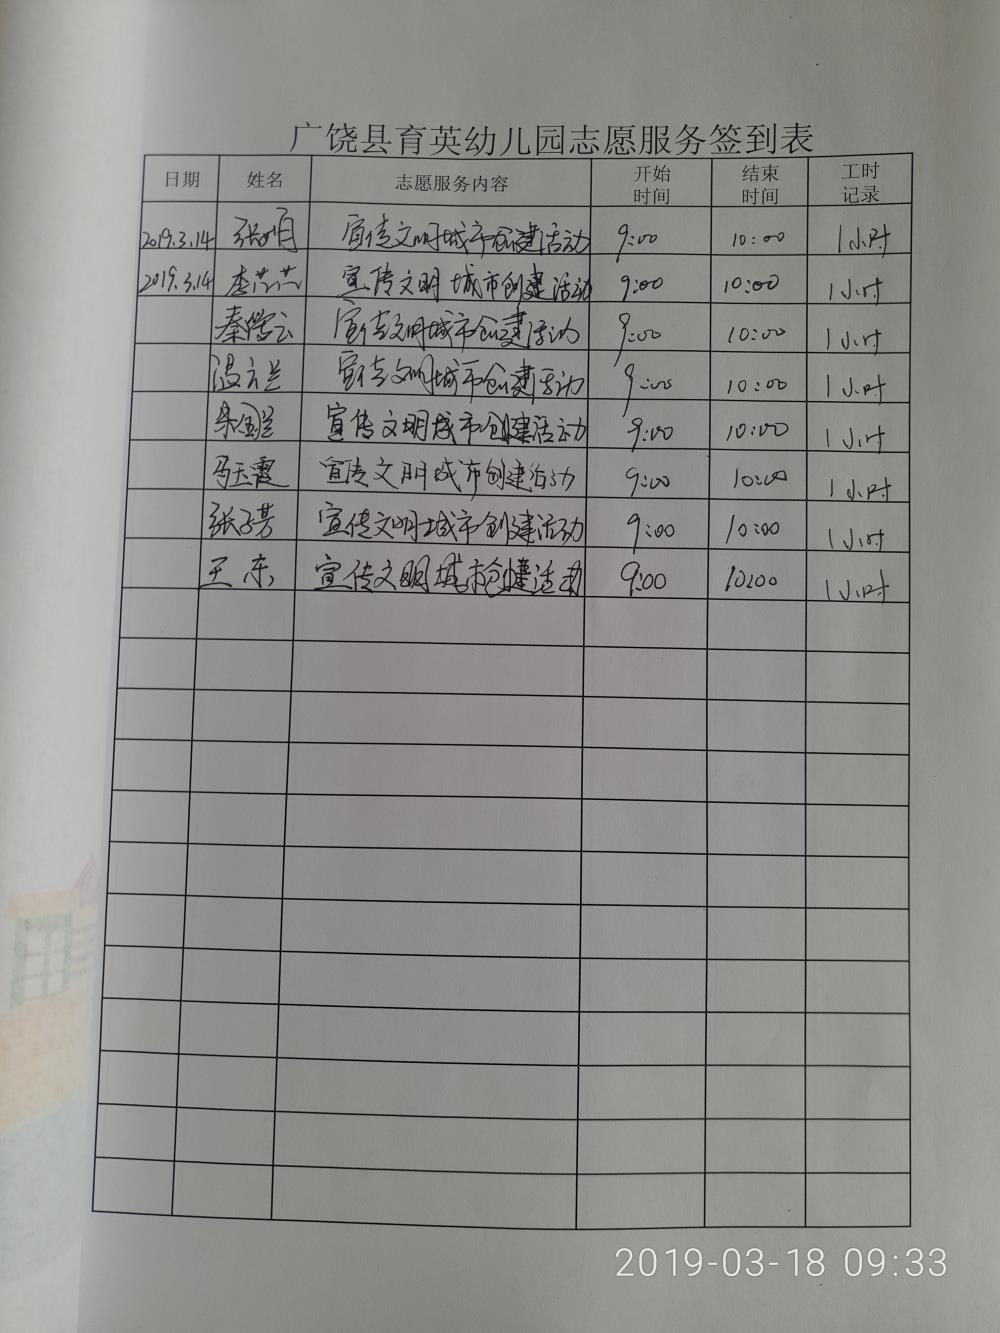 广饶县育英幼儿园志愿服务签到表
日期 姓名 志愿服务内容 开始时间 结束时间 工时记录
2019.3.14 宣传文明城市创建活动 9:00 10:00 1小时
2019.3.14 李芸芸 宣传文明城市创建活动 9:00 10:00 1小时
宣传文明城市创建活动 9:00 10:00 1小时
温立兰 宣传文明城市创建活动 9:00 10:00 1小时
宣传文明城市创建活动 9:00 10:00 1小时
马玉霞 宣传文明城市创建活动 9:00 10:00 1小时
张子芳 宣传文明城市创建活动 9:00 10:00 1小时
王东 宣传文明城市创建活动 9:00 10:00 1小时
2019-03-18 09:33